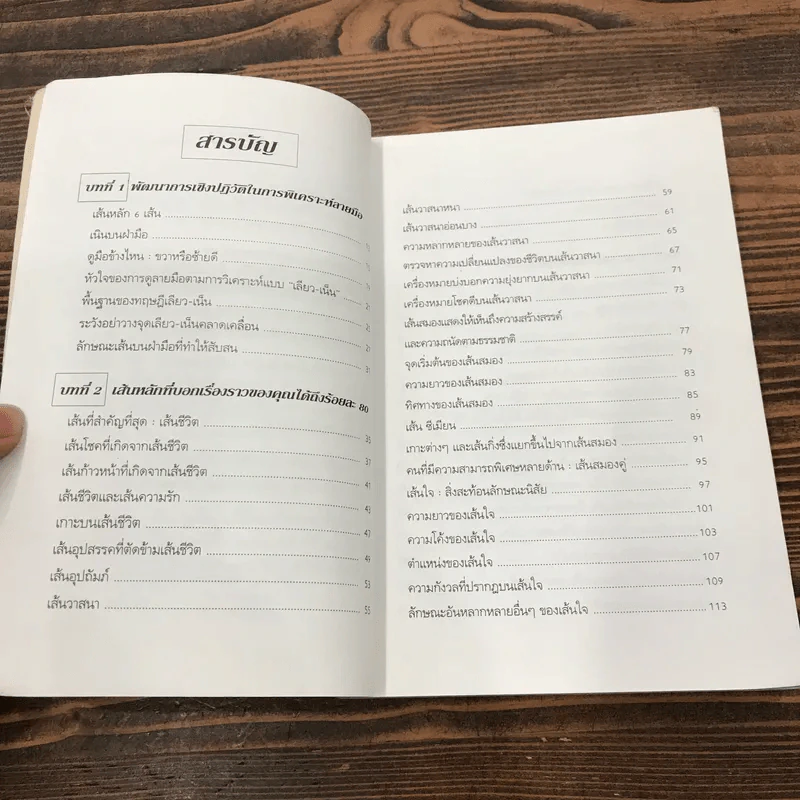 สารบัญ
บทที่ 1 พัฒนาการเชิงปฏิวัติในการพิเคราะห์ลายมือ
เส้นหลัก 6 เส้น
เนินบนฝ่ามือ
ดูมือข้างไหน : ขวาหรือซ้ายดี
หัวใจของการดูลายมือตามการวิเคราะห์แบบ "เลียว-เน็น"
พื้นฐานของทฤษฎีเลียว-เน็น
ระวังอย่าวางจุดเลียว-เน็นคลาดเคลื่อน
ลักษณะเส้นบนฝ่ามือที่ทำให้สับสน
บทที่ 2 เส้นหลักที่บอกเรื่องราวของคุณได้ถึงร้อยละ 80
เส้นที่สำคัญที่สุด : เส้นชีวิต 35
เส้นโชคที่เกิดจากเส้นชีวิต 37
เส้นก้าวหน้าที่เกิดจากเส้นชีวิต 41
เส้นชีวิตและเส้นความรัก 43
เกาะบนเส้นชีวิต 47
เส้นอุปสรรคที่ตัดข้ามเส้นชีวิต 49
เส้นอุปถัมภ์ 53
เส้นวาสนา 55
เส้นวาสนาหนา 59
เส้นวาสนาอ่อนบาง 61
ความหลากหลายของเส้นวาสนา 65
ตรวจหาความเปลี่ยนแปลงของชีวิตบนเส้นวาสนา 67
เครื่องหมายบ่งบอกความยุ่งยากบนเส้นวาสนา 71
เครื่องหมายโชคดีบนเส้นวาสนา 73
เส้นสมองแสดงให้เห็นถึงความสร้างสรรค์
และความถนัดตามธรรมชาติ 77
จุดเริ่มต้นของเส้นสมอง 79
ความยาวของเส้นสมอง 83
ทิศทางของเส้นสมอง 85
เส้น ซีเมียน 89
เกาะต่างๆ และเส้นกิ่งซึ่งแยกขึ้นไปจากเส้นสมอง 91
คนที่มีความสามารถพิเศษหลายด้าน : เส้นสมองคู่ 95
เส้นใจ : สิ่งสะท้อนลักษณะนิสัย 97
ความยาวของเส้นใจ 101
ความโค้งของเส้นใจ 103
ตำแหน่งของเส้นใจ 107
ความกังวลที่ปรากฏบนเส้นใจ 109
ลักษณะอันหลากหลายอื่นๆ ของเส้นใจ 113